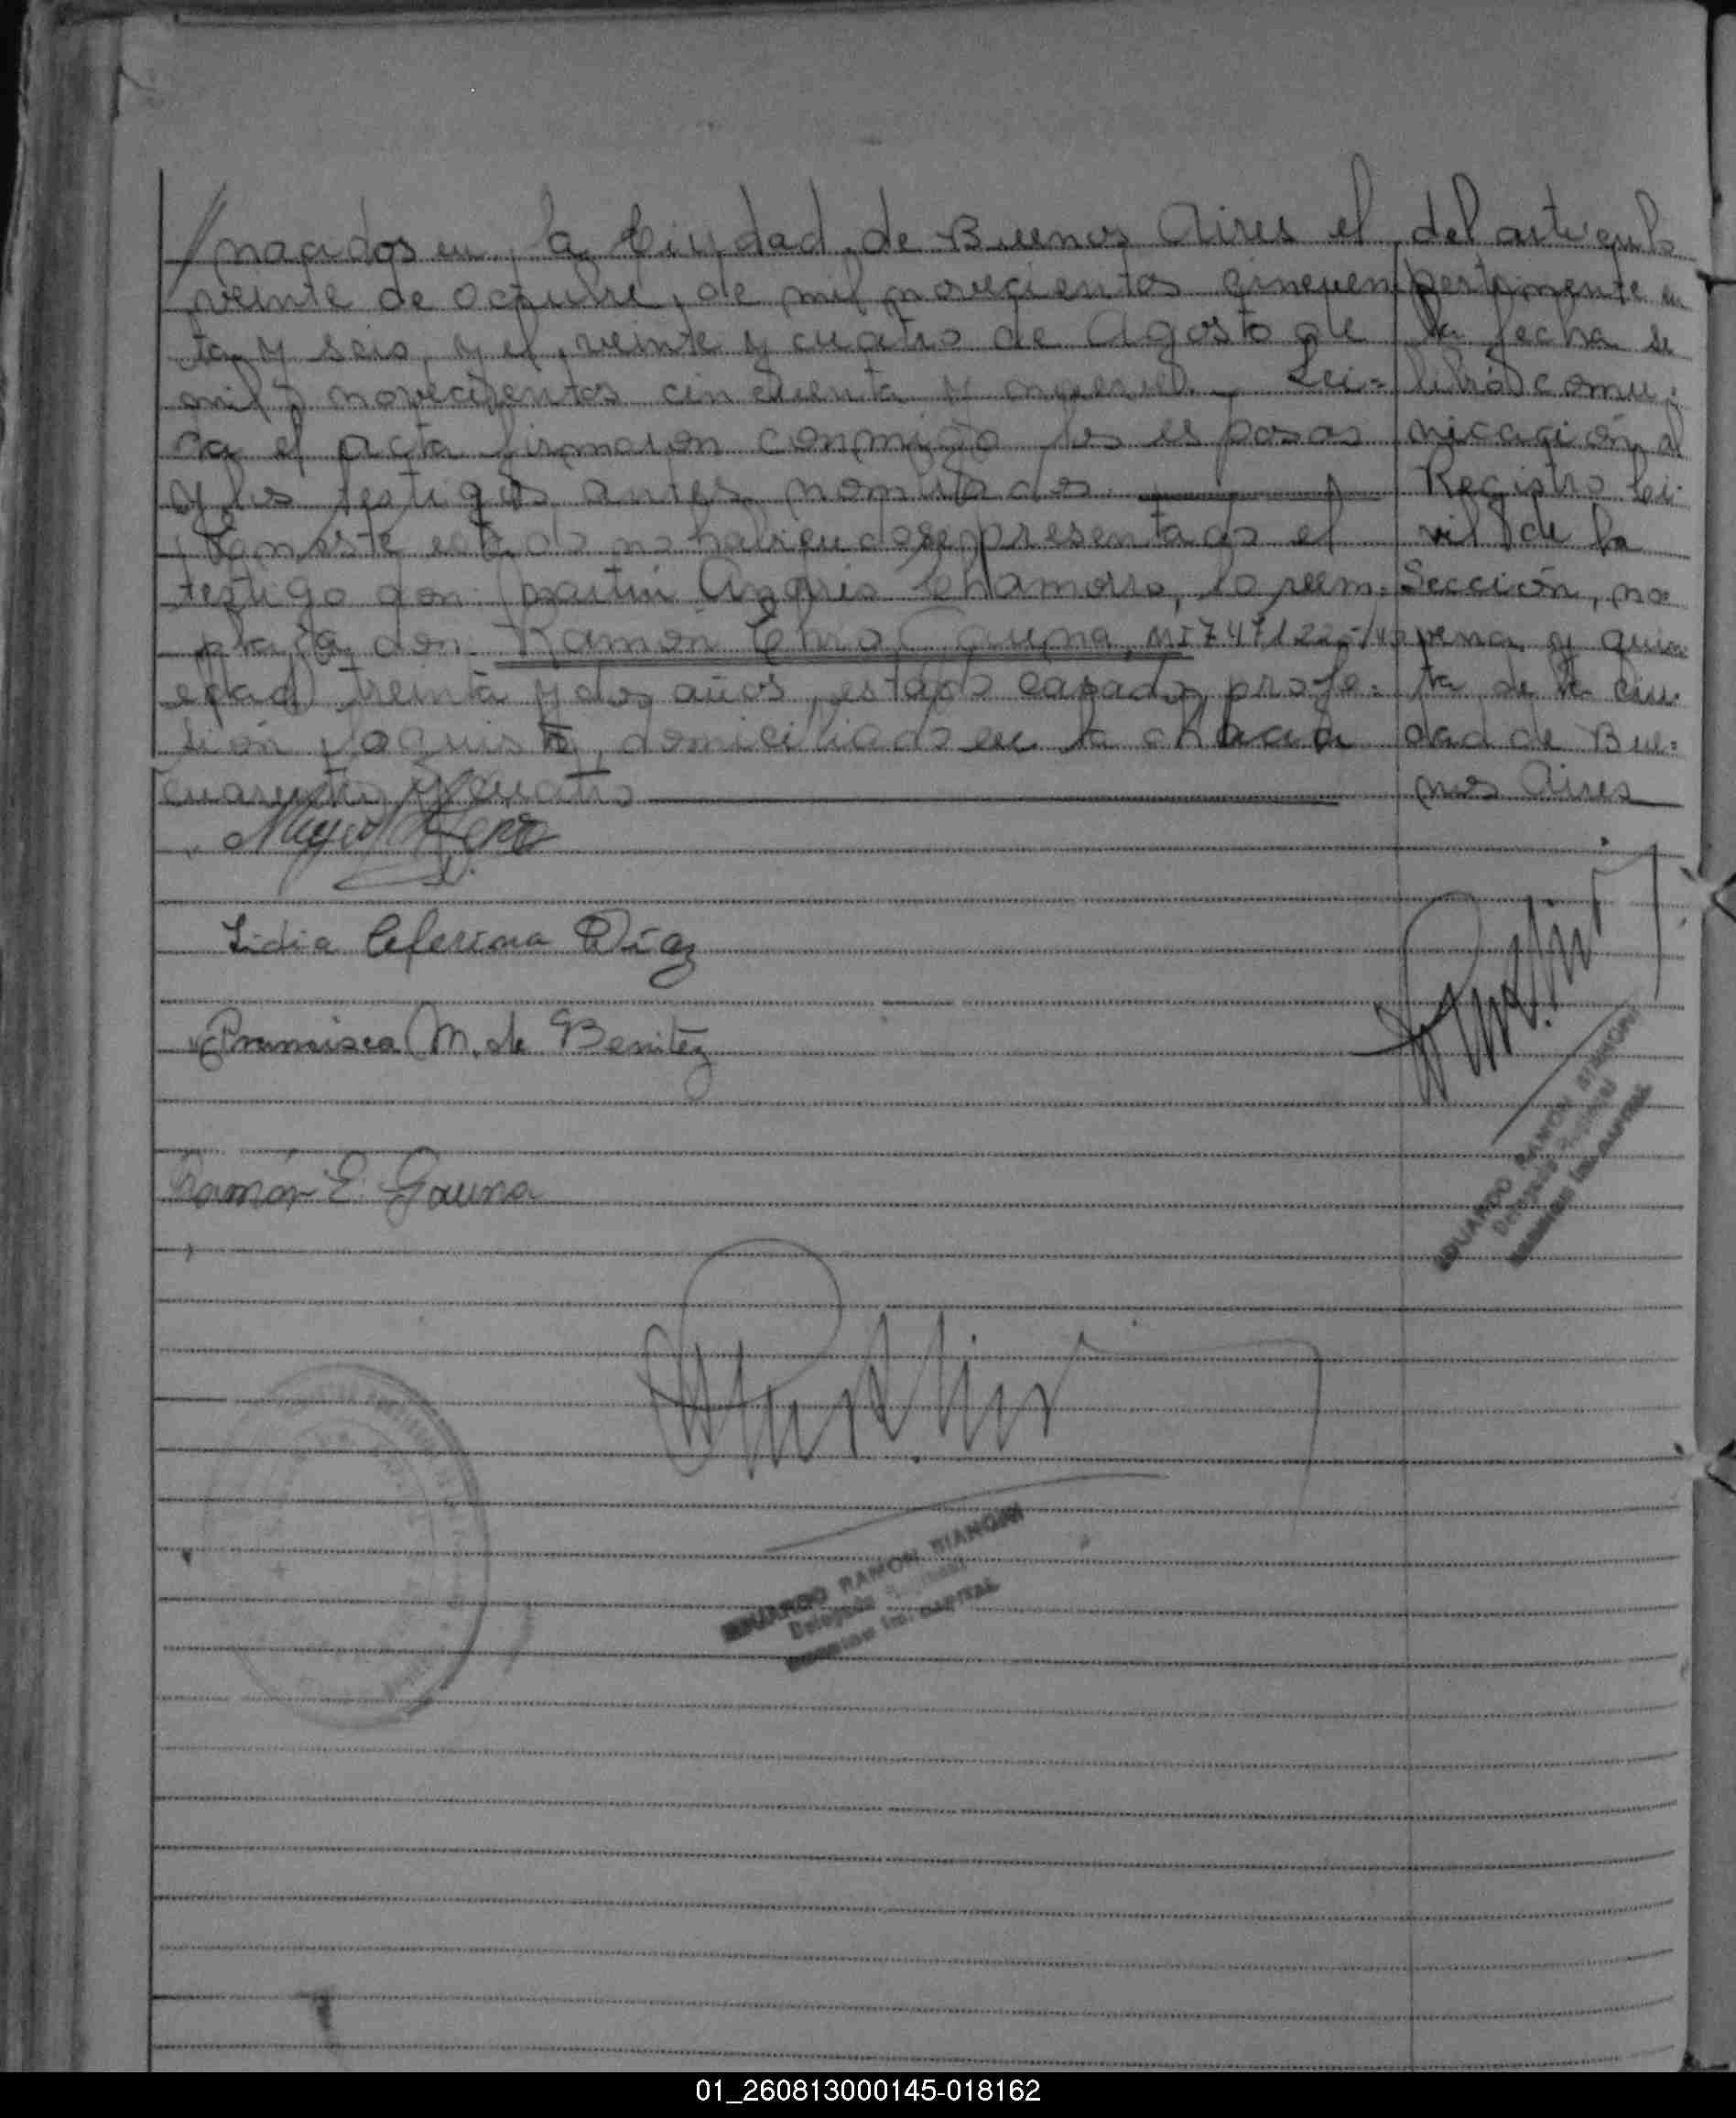 /nacidos en la Ciudad de Buenos Aires el
veinte de Octubre, de mil novecientos cincuen
ta y seis, y el veinte y cuatro de Agosto de
mil novecientos cincuenta y nueve. - Leí=
da el acta firmaron conmigo los esposos
y los testigos antes nombrados.
En este estado no habiendose presentado el
testigo don Martín Andrés Chamorro, lo reem=
plaza don Ramón Gauna, MI 7471225/
edad treinta y dos años, estado casado, profe=
sión foguista, domiciliado en la chacra
cuarenta y cuatro
del artículo
pertinente en
la fecha se
libró comu=
nicación al
Registro Ci=
vil de la
Sección, no=
vena y quin=
ta de la Ciu=
dad de Bue=
nos Aires
Lidia Ceferina Díaz
Francisca M. de Benitez
Ramón E. Gauna
EDUARDO RAMON BIANCHI
Delegado
CAPITAL
EDUARDO RAMON BIANCHI
Delegado
CAPITAL
01_260813000145-018162